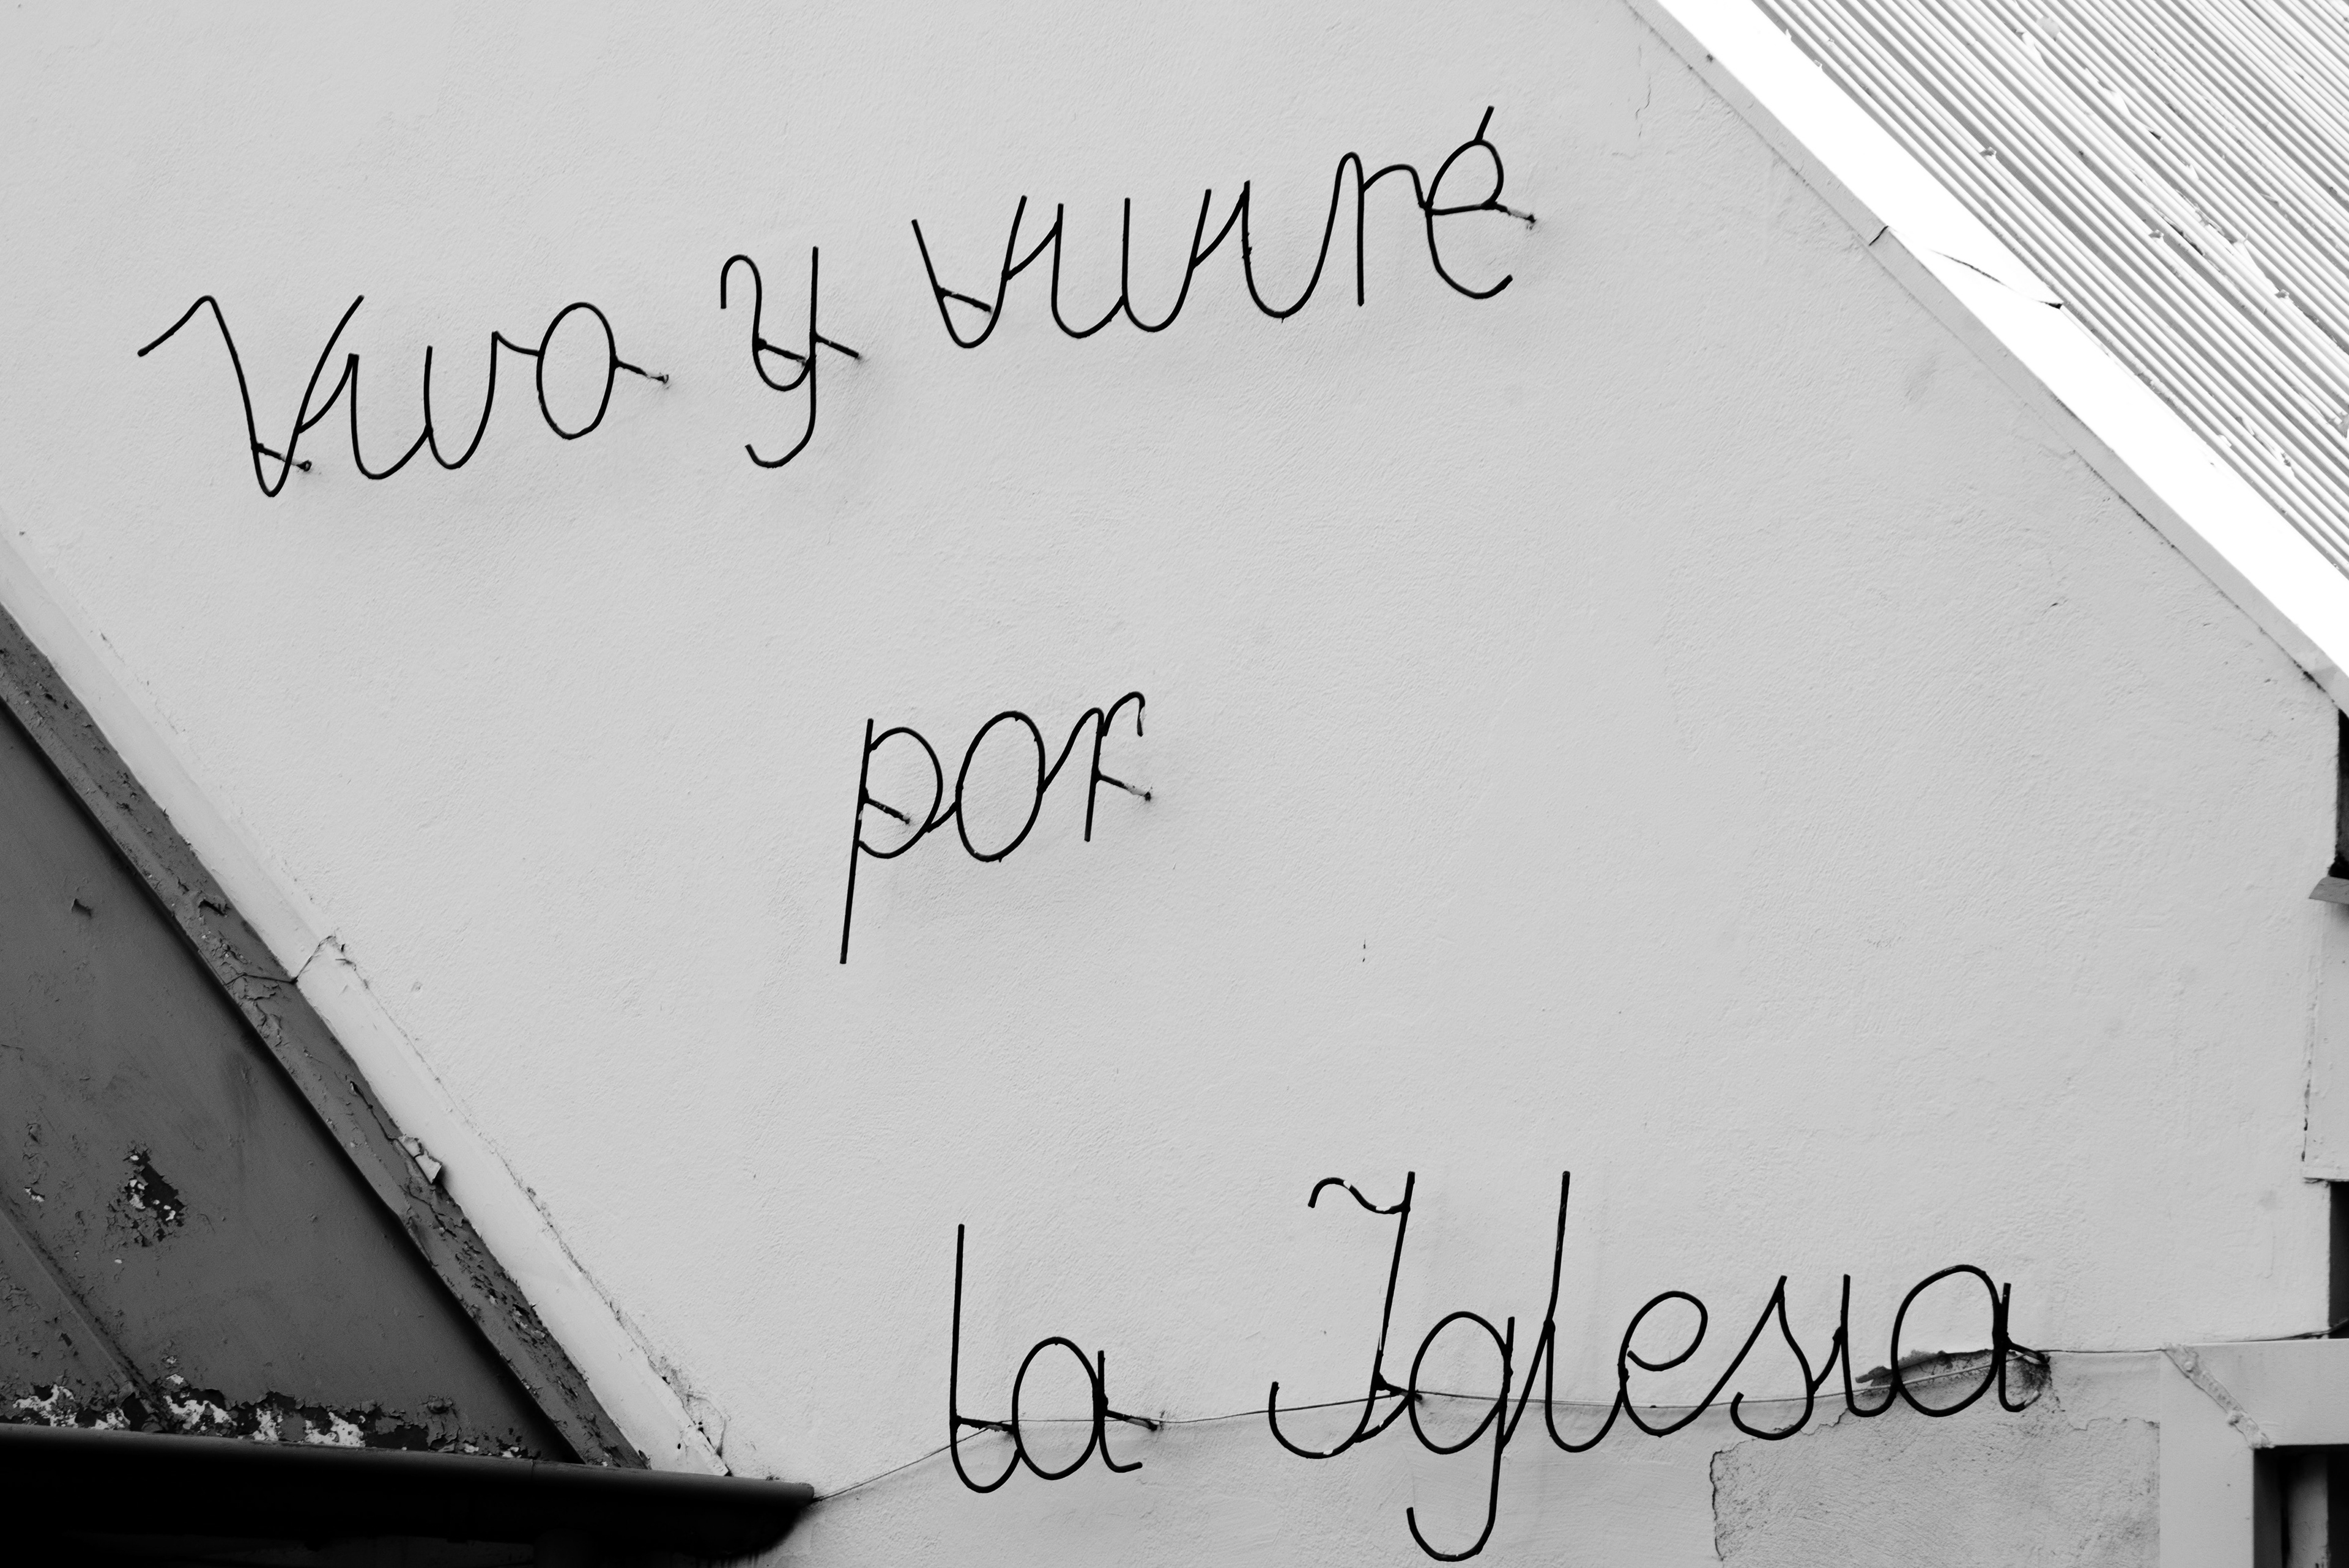 Vivo y viviré
por
la Iglesia